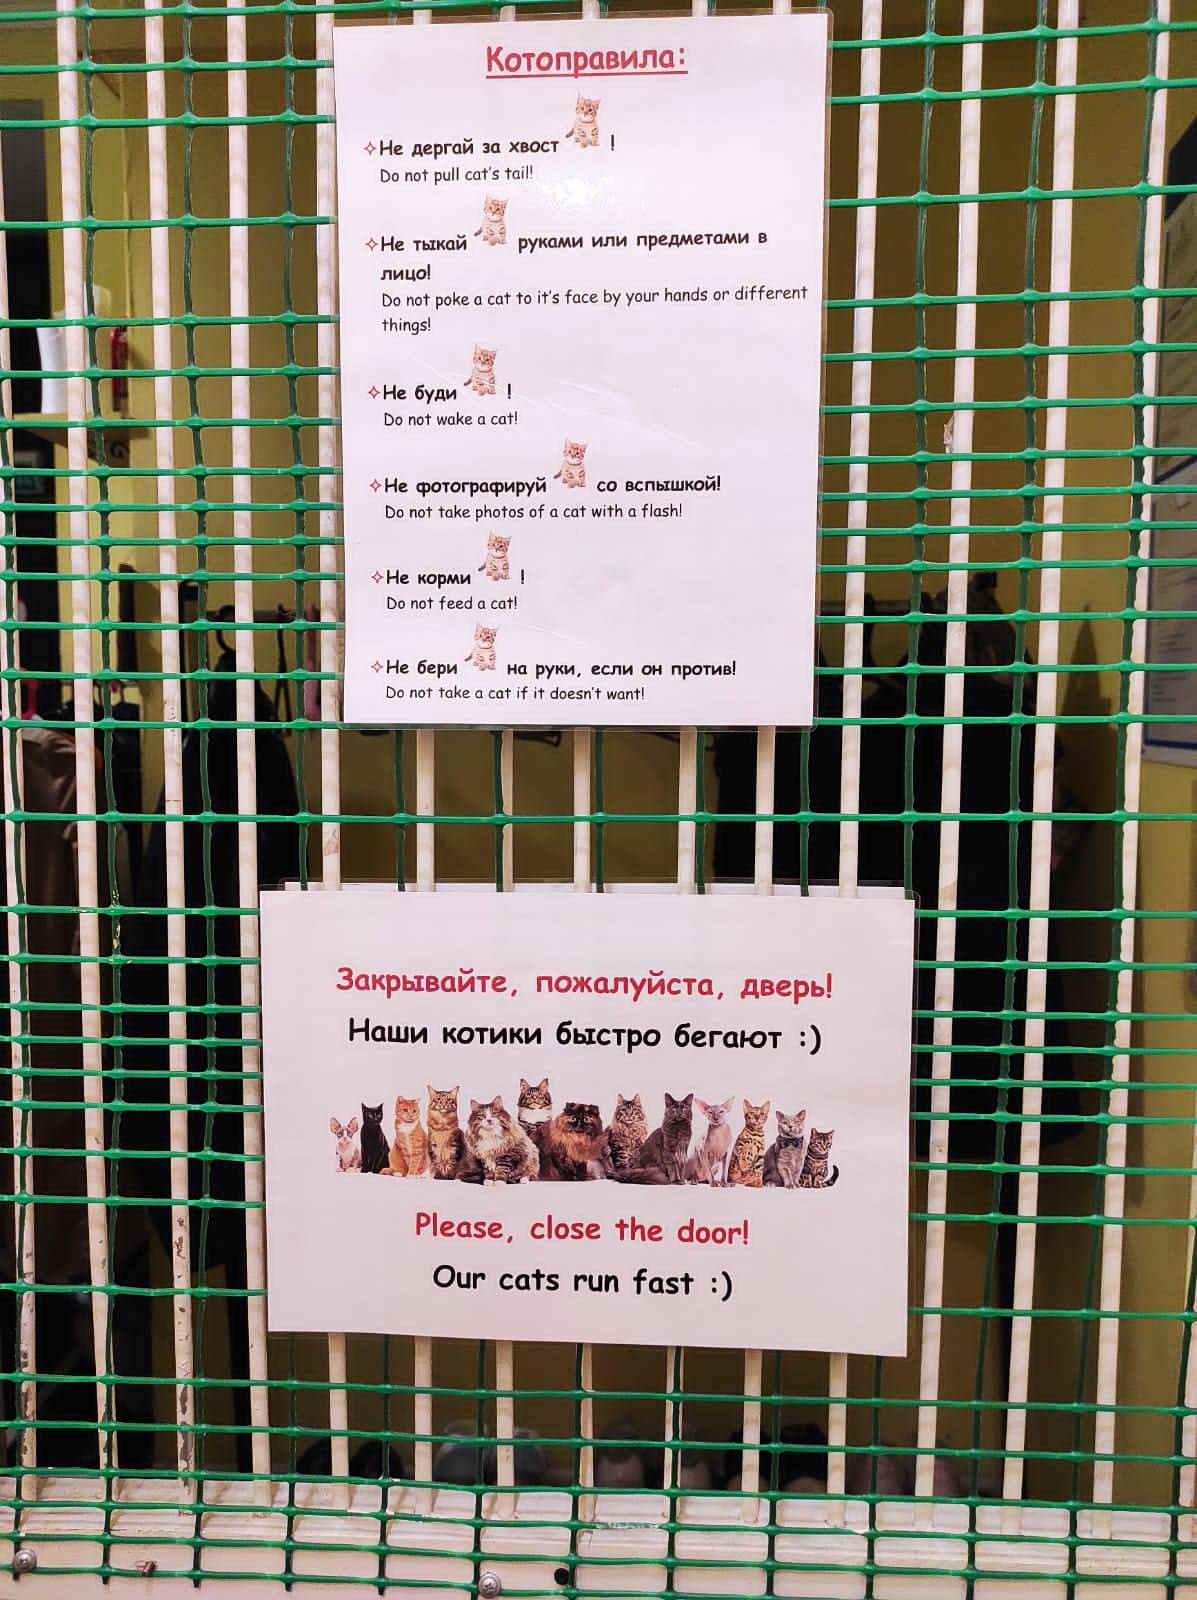 Котоправила:
Не дергай за хвост !
Do not pull cat's tail!
Не тыкай руками или предметами в
лицо!
Do not poke a cat to it's face by your hands or different
things!
Не буди !
Do not wake a cat!
Не фотографируй со вспышкой!
Do not take photos of a cat with a flash!
Не корми !
Do not feed a cat!
Не бери на руки, если он против!
Do not take a cat if it doesn't want!
Закрывайте, пожалуйста, дверь!
Наши котики быстро бегают :)
Please, close the door!
Our cats run fast :)